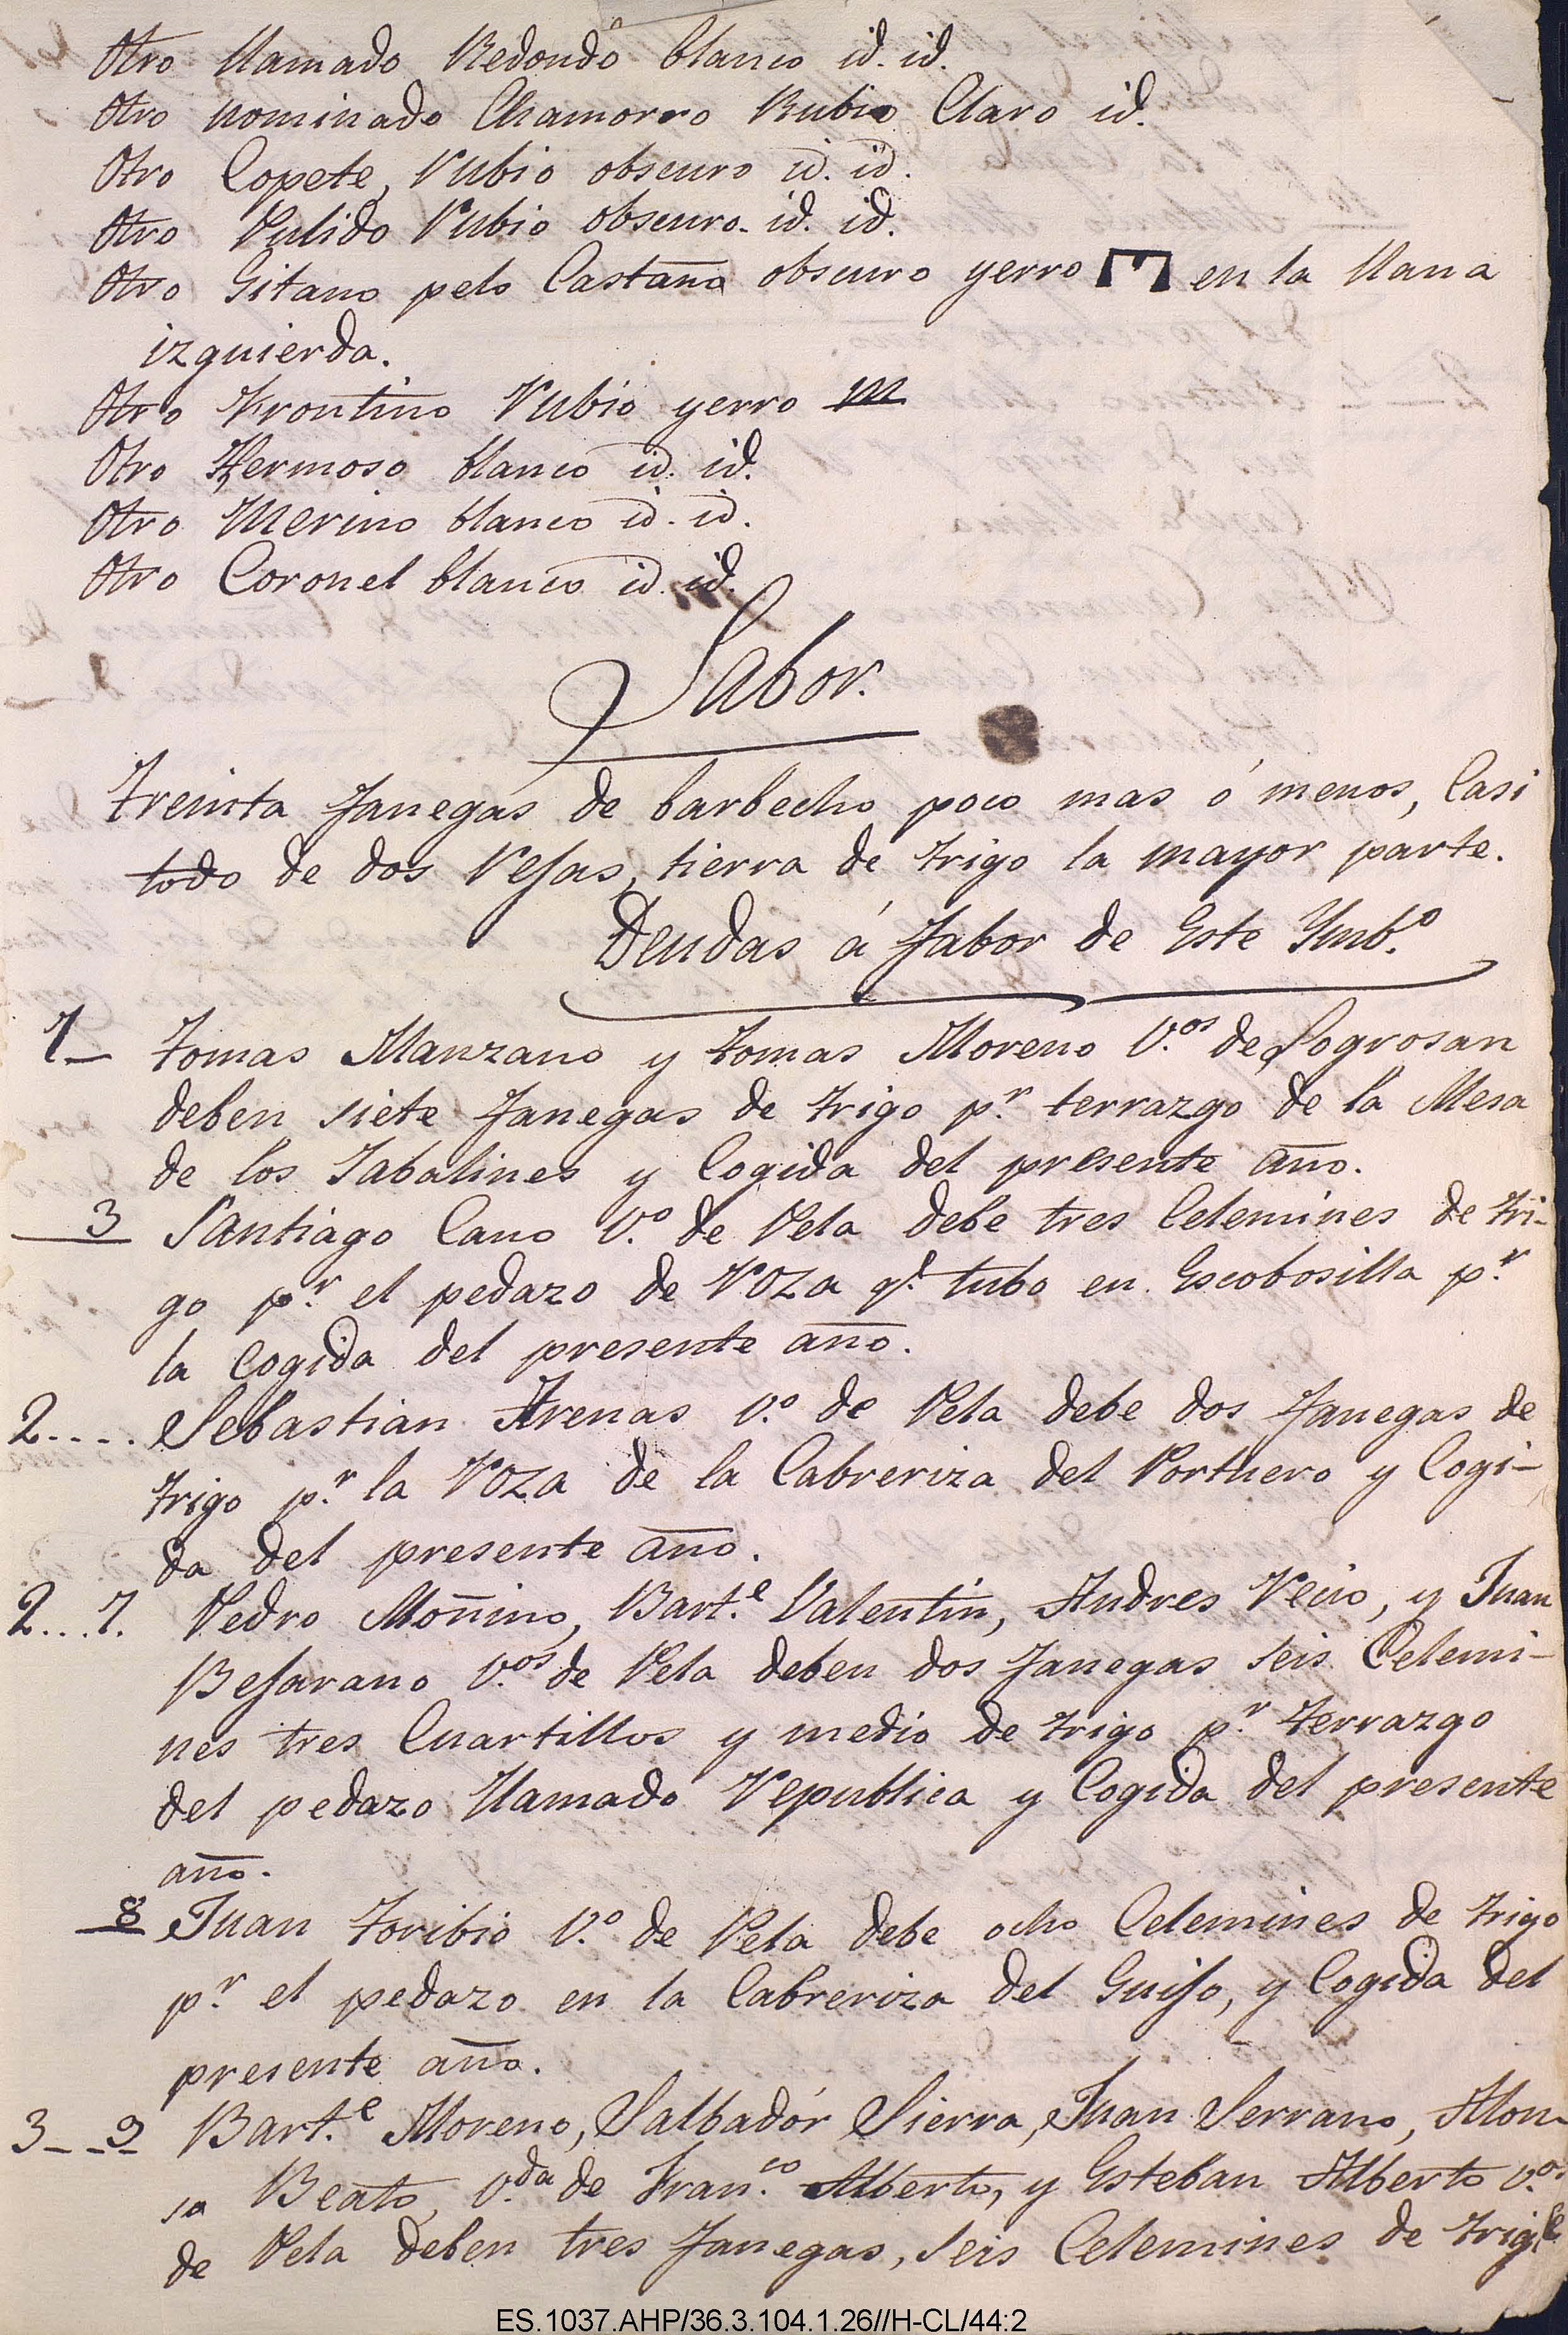 Otro llamado Redondo blanco id. id.
Otro nominado Chamorro Rubio Claro id.
Otro Copete, Rubio obscuro id. id.
Otro Pulido Rubio obscuro. id. id.
Otro Gitano pelo Castaño obscuro yerro en la llana
izquierda.
Otro Frontino Rubio yerro m
Otro Hermoso blanco id. id.
Otro Merino blanco id. id.
Otro Coronel blanco id. id.
Labor.
Treinta fanegas de barbecho poco mas ó menos, Casi
todo de dos Rejas, tierra de trigo la mayor parte.
Deudas á fabor de Este Ymb.º
7_ Tomas Manzano y Tomas Moreno V.os de Logrosan
deben siete fanegas de trigo p.r terrazgo de la Mesa
de los Jabalines y Cogida del presente año.
3 Santiago Cano V.º de Vela debe tres Celemines de tri-
go p.r el pedazo de Roza q.e tubo en Escobosilla p.r
la Cogida del presente año.
2.... Sebastian Arenas V.º de Vela debe dos fanegas de
trigo p.r la Roza de la Cabreriza del Portuero y Cogi-
da del presente año.
2...7. Pedro Moñino, Bart.e Valentin, Andres Recio, y Juan
Bejarano V.os de Vela deben dos fanegas seis Celemi-
nes tres Cuartillos y medio de trigo p.r terrazgo
del pedazo llamado Republica y Cogida del presente
año.
8 Juan Toribio V.º de Vela debe ocho Celemines de trigo
p.r el pedazo en la Cabreriza del Guijo, y Cogida del
presente año.
3_ _9 Bart.e Moreno, Salbadór Sierra, Juan Serrano, Alon-
sa Beato, V.da de Fran.co Alberto, y Esteban Alberto V.os
de Vela deben tres fanegas, seis Celemines de trigo
ES.1037.AHP/36.3.104.1.26//H-CL/44:2